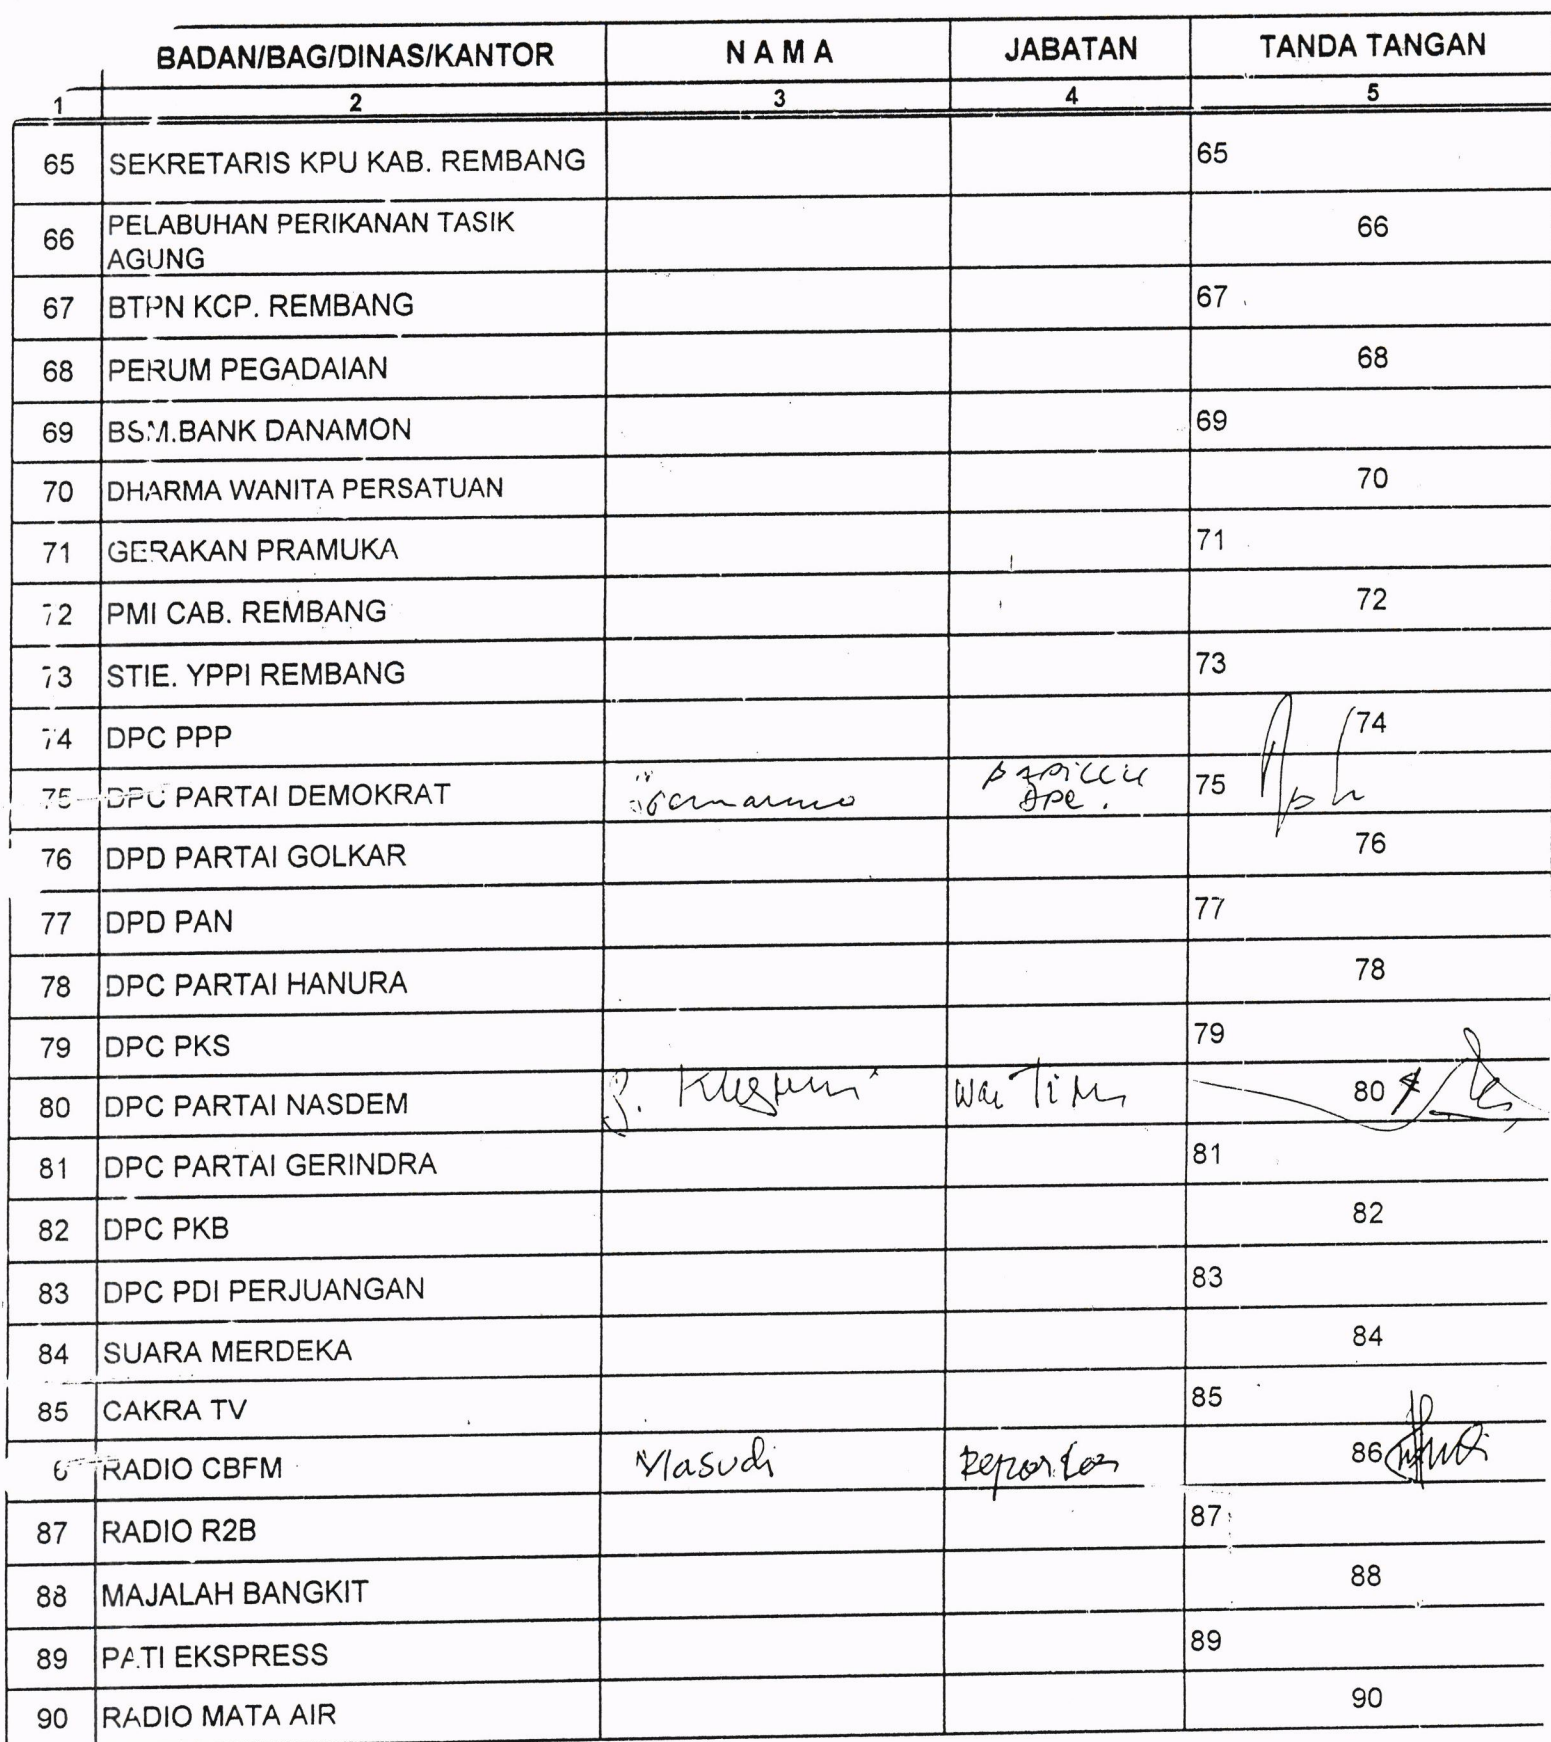 BADAN/BAG/DINAS/KANTOR N A M A JABATAN TANDA TANGAN
1 2 3 4 5
65 SEKRETARIS KPU KAB. REMBANG 65
66 PELABUHAN PERIKANAN TASIK AGUNG 66
67 BTPN KCP. REMBANG 67
68 PERUM PEGADAIAN 68
69 BSM.BANK DANAMON 69
70 DHARMA WANITA PERSATUAN 70
71 GERAKAN PRAMUKA 71
72 PMI CAB. REMBANG 72
73 STIE. YPPI REMBANG 73
74 DPC PPP 74
75 DPC PARTAI DEMOKRAT DPC. 75
76 DPD PARTAI GOLKAR 76
77 DPD PAN 77
78 DPC PARTAI HANURA 78
79 DPC PKS 79
80 DPC PARTAI NASDEM 80
81 DPC PARTAI GERINDRA 81
82 DPC PKB 82
83 DPC PDI PERJUANGAN 83
84 SUARA MERDEKA 84
85 CAKRA TV 85
6 RADIO CBFM Masudi Reporter 86
87 RADIO R2B 87
88 MAJALAH BANGKIT 88
89 PATI EKSPRESS 89
90 RADIO MATA AIR 90